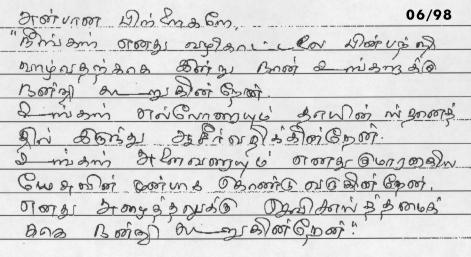 06/98
அன்பான பிள்ளைகளே,
"நீங்கள் எனது வழிகாட்டலை பின்பற்றி
வாழ்வதற்காக இன்று நான் உங்களுக்கு
நன்றி கூறுகின்றேன்.
உங்கள் எல்லோரையும் தாயின் ஸ்தானத்
தில் இருந்து ஆசீர்வதிக்கின்றேன்.
உங்கள் அனைவரையும் எனது குமாரனாகிய
யேசுவின் முன்பாக கொண்டு வருகின்றேன்.
எனது அழைத்தலுக்கு செவிசாய்த்தமைக்
காக நன்றி கூறுகின்றேன்."